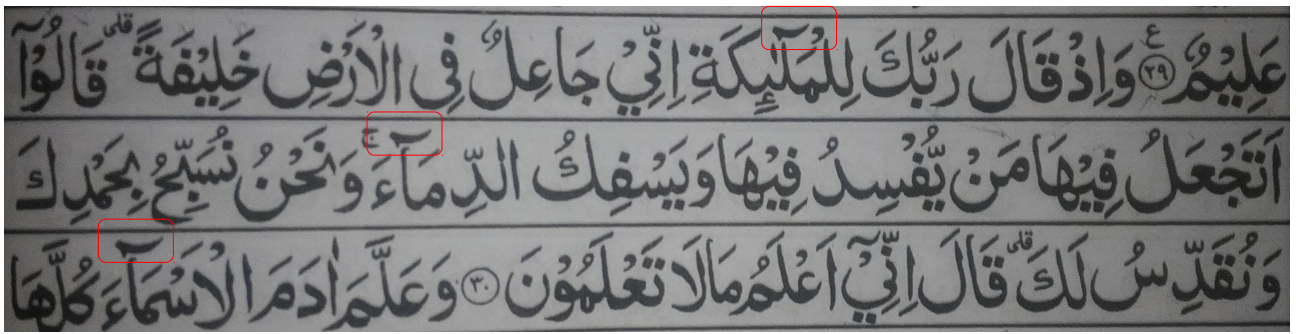 عَلِيْمٌ ﴿۲۹﴾ ع وَاِذْ قَالَ رَبُّكَ لِلْمَلٰٓئِكَةِ اِنِّيْ جَاعِلٌ فِى الْاَرْضِ خَلِيْفَةً ؕ قَالُوْٓا
اَتَجْعَلُ فِيْهَا مَنْ يُّفْسِدُ فِيْهَا وَيَسْفِكُ الدِّمَآءَ ۚ وَنَحْنُ نُسَبِّحُ بِحَمْدِكَ
وَنُقَدِّسُ لَكَ ؕ قَالَ اِنِّيْٓ اَعْلَمُ مَا لَا تَعْلَمُوْنَ ﴿۳۰﴾ وَعَلَّمَ اٰدَمَ الْاَسْمَآءَ كُلَّهَا